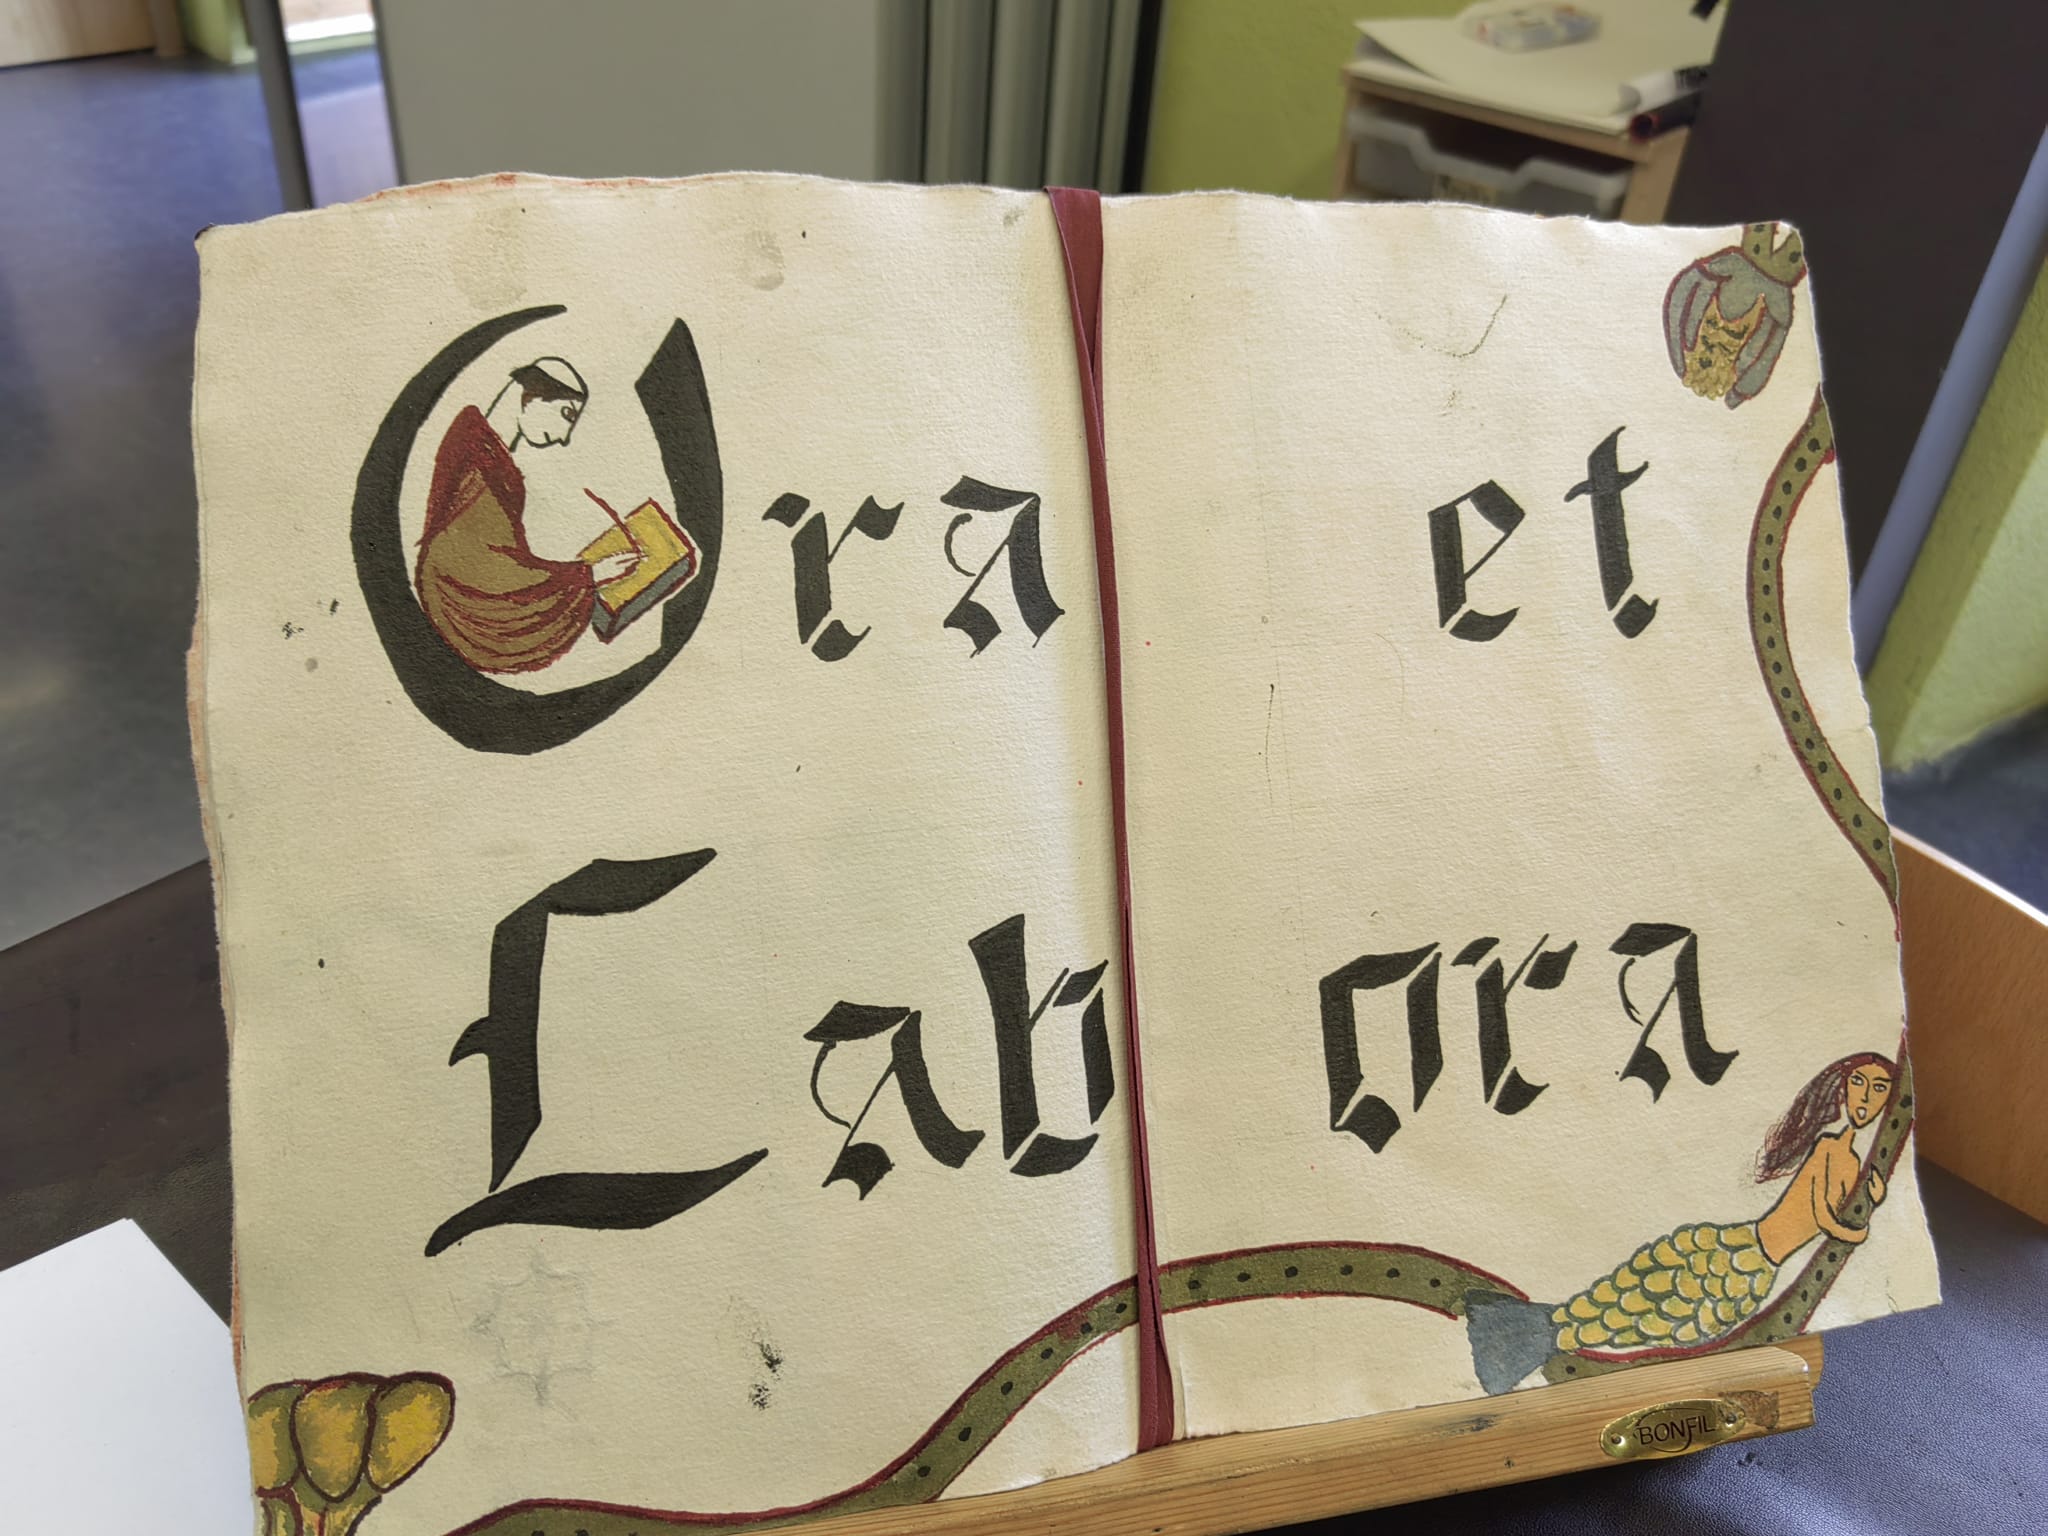 Ora et
Labora
BONFIL